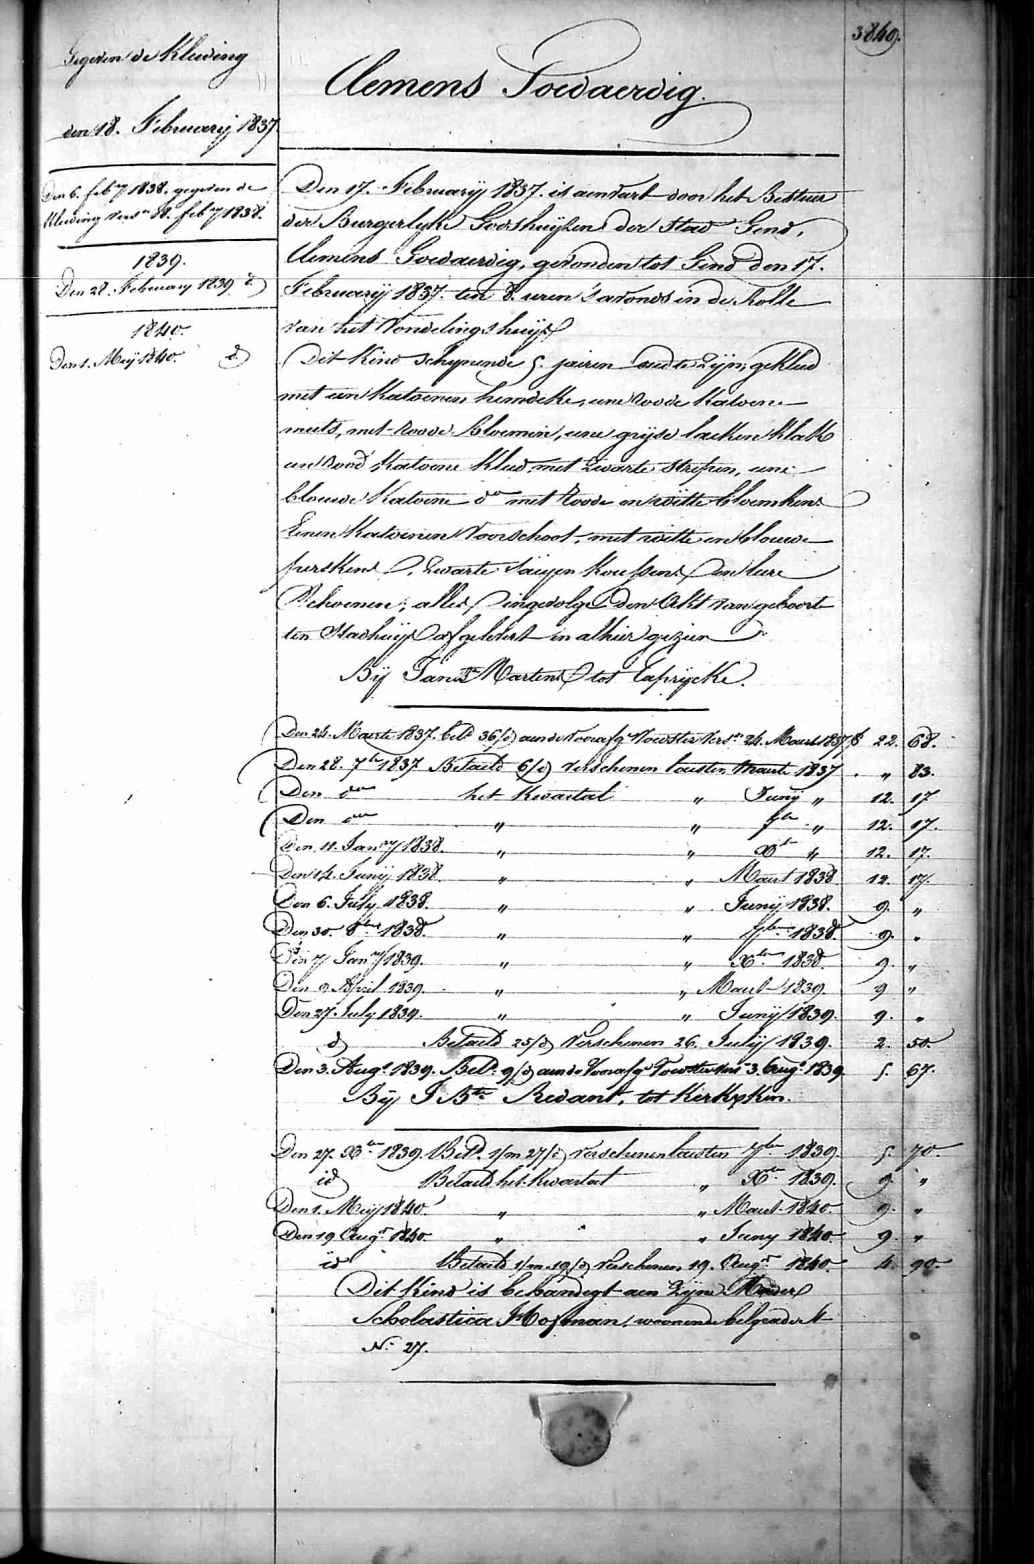 3840.
Gegeven de Kleeding
den 18. Februarij 1837
Den 6. feb.y 1838. gegeven de
kleeding versn 18. feby 1838.
1839.
Den 28. February 1839. d
1840.
Den 1. Meij 1840. d
Clemens Goedaerdig.
Den 17. Februarij 1837. is aenvaart door het Bestuur
der Burgerlyke Godshuijzen der stad Gend,
Clemens Goedaerdig, gevonden tot Gend den 17.
Februarij 1837. ten 8. uren 's avonds in de rolle
van het Vondelingshuijs
Dit Kind schynende 5. jaeren oud te zijn, gekleed
met een Katoenen hemdeke, eene roode Katoene
muts, met roode bloemen, eene gryse laeken Klak
een rood Katoene Kleed, met zwarte strepen, eene
blouwe Katoene do met roode en witte bloemkens
Eenen Katoenen Voorschoot, met witte en blouwe
perskens, zwarte saijen Koussens en leere
Schoenen; alles ingevolge den Akt van geboorte
ten Stadhuijse afgelevert en alhier gezien
Bij Janns Martens tot Caprycke.
Den 24. Maerte 1837. betd 36/d aen de voorafge Voedster versn 24. Maert 1837 f 22. 68.
Den 28. 7br 1837 Betaeld 6/d verschenen laesten Maerte 1837 . " 83.
Den do het Kwartal " Junij " 12. 17
Den do " " 7bre " 12. 17.
Den 11. Jany 1838. " " Xbr " 12. 17.
Den 12. Junij 1838. " " Maert 1838 12. 17.
Den 6. July 1838. " " Junij 1838. 9. "
Den 30. 8bre 1838. " " 7bre 1838. 9. "
Den 7 Jany 1839. " " Xbre 1838. 9. "
Den 9 April 1839. " " Maert 1839. 9 "
Den 27. July 1839. " " Junij 1839. 9. "
d Betaeld 25/d Verschenen 26. Julij 1839. 2. 50.
Den 3. Augt 1839. Betd 9/d aen de Voorafge Voedster vers 3. Augt 1839. 5. 67.
Bij J. Bte Redant, tot Kerkxken.
Den 27. Xbre 1839. Betd 1/m 27/d verschenen laesten 7bre 1839. 5. 70.
id Betaeld het Kwartal " Xbre 1839. 9. "
Den 1. Meij 1840. " " Maert 1840. 9. "
Den 19 Augt 1840. " " Juny 1840. 9. "
id Betaeld 1/m 19/d verschenen 19. Augt 1840. 4. 90
Dit Kind is behandigt aen zyne Moeder
Scholastica Hofman, woonende belgradestt
No 27.